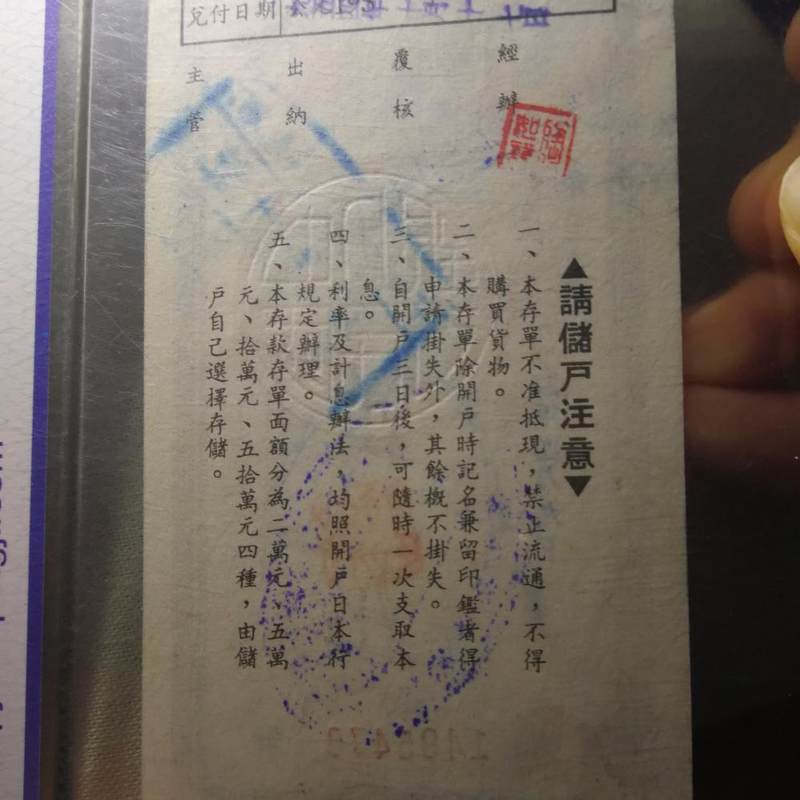 兌付日期
經辦
覆核
出納
主管
▲請儲戶注意▼
一、本存單不准抵現，禁止流通，不得
購買貨物。
二、本存單除開戶時記名兼留印鑑者得
申請掛失外，其餘概不掛失。
三、自開戶三日後，可隨時一次支取本
息。
四、利率及計息辦法，均照開戶日本行
規定辦理。
五、本存款存單面額分為二萬元、五萬
元、拾萬元、五拾萬元四種，由儲
戶自己選擇存儲。